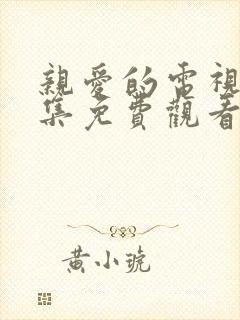 親愛的電視
集免費觀看
黃小琥